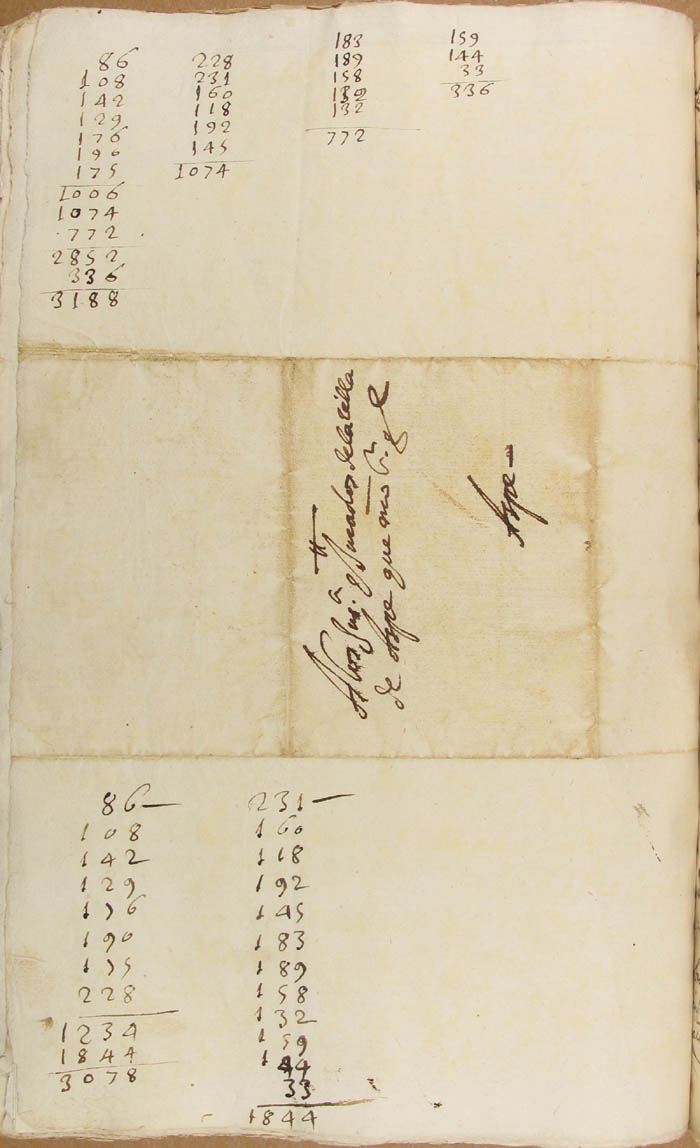 86
108
142
129
176
190
175
1006
1074
772
2852
336
3188
228
231
160
118
192
145
1074
183
189
158
132
772
159
144
33
336
A los Jur.
de Aspe que
Aspe
86
108
142
129
176
190
175
228
1234
1844
3078
231
160
118
192
145
183
189
158
132
159
144
33
1844